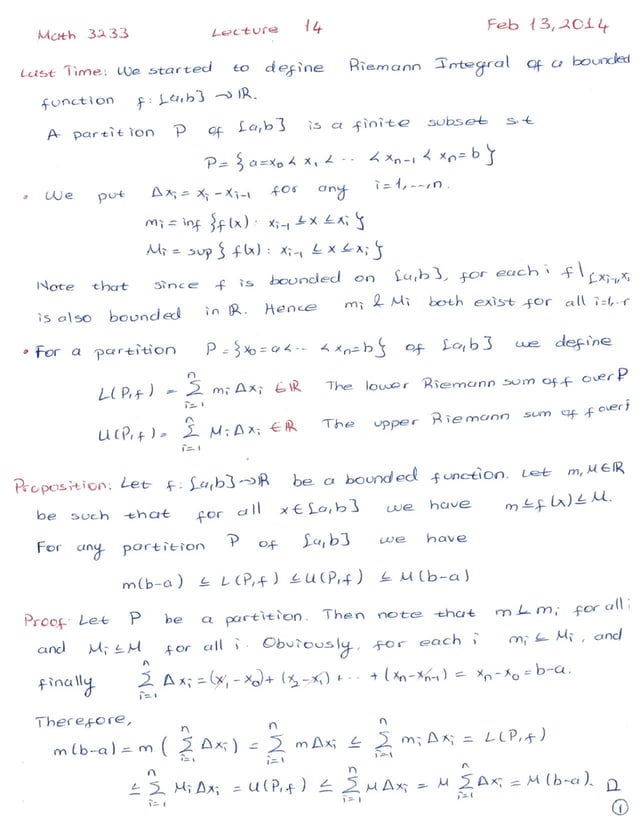 Math 3233 Lecture 14 Feb 13, 2014
Last Time: We started to define Riemann Integral of a bounded
function f: [a,b] → ℝ.
A partition P of [a,b] is a finite subset s.t
P = { a=x₀ < x₁ < ... < xₙ₋₁ < xₙ = b }
• We put Δxᵢ = xᵢ - xᵢ₋₁ for any i=1,...,n.
mᵢ = inf { f(x) : xᵢ₋₁ ≤ x ≤ xᵢ }
Mᵢ = sup { f(x) : xᵢ₋₁ ≤ x ≤ xᵢ }
Note that since f is bounded on [a,b], for each i f|[xᵢ₋₁,xᵢ
is also bounded in ℝ. Hence mᵢ & Mᵢ both exist for all i=1,..
• For a partition P = { x₀=a < ... < xₙ=b } of [a,b] we define
L(P,f) = ∑ᵢ₌₁ⁿ mᵢ Δxᵢ ∈ℝ The lower Riemann sum of f over P
U(P,f) = ∑ᵢ₌₁ⁿ Mᵢ Δxᵢ ∈ℝ The upper Riemann sum of f over
Proposition: Let f: [a,b] → ℝ be a bounded function. Let m, M ∈ ℝ
be such that for all x ∈ [a,b] we have m ≤ f(x) ≤ M.
For any partition P of [a,b] we have
m(b-a) ≤ L(P,f) ≤ U(P,f) ≤ M(b-a)
Proof: Let P be a partition. Then note that m ≤ mᵢ for all i
and Mᵢ ≤ M for all i. Obviously, for each i mᵢ ≤ Mᵢ, and
finally ∑ᵢ₌₁ⁿ Δxᵢ = (x₁ - x₀) + (x₂ - x₁) + ... + (xₙ - xₙ₋₁) = xₙ - x₀ = b-a.
Therefore,
m(b-a) = m ( ∑ᵢ₌₁ⁿ Δxᵢ ) = ∑ᵢ₌₁ⁿ mΔxᵢ ≤ ∑ᵢ₌₁ⁿ mᵢ Δxᵢ = L(P,f)
≤ ∑ᵢ₌₁ⁿ Mᵢ Δxᵢ = U(P,f) ≤ ∑ᵢ₌₁ⁿ MΔxᵢ = M ∑ᵢ₌₁ⁿ Δxᵢ = M(b-a). □
1